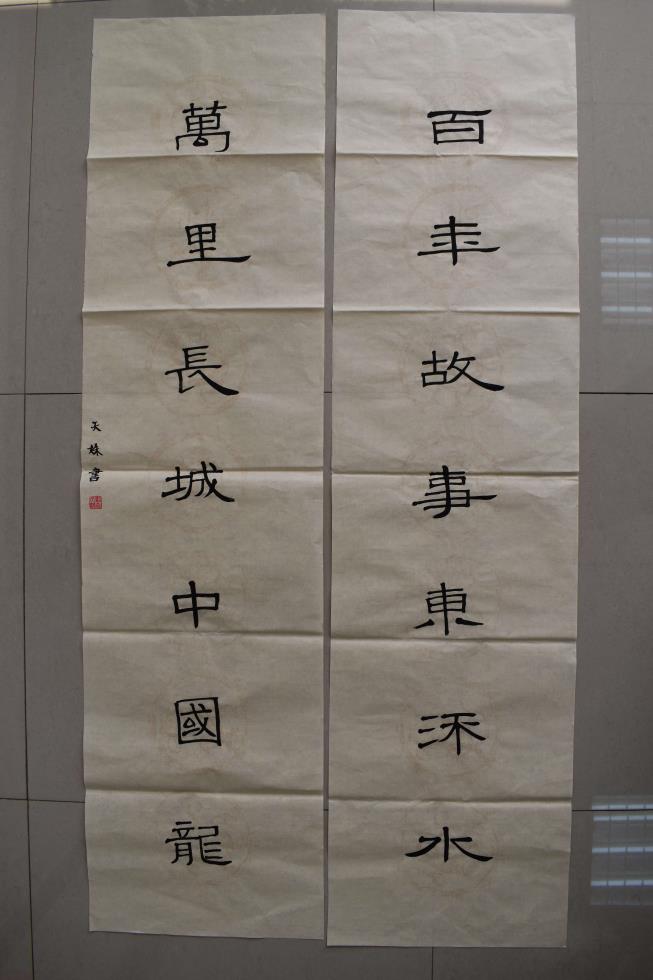 百年故事東流水
萬里長城中國龍
天姝書